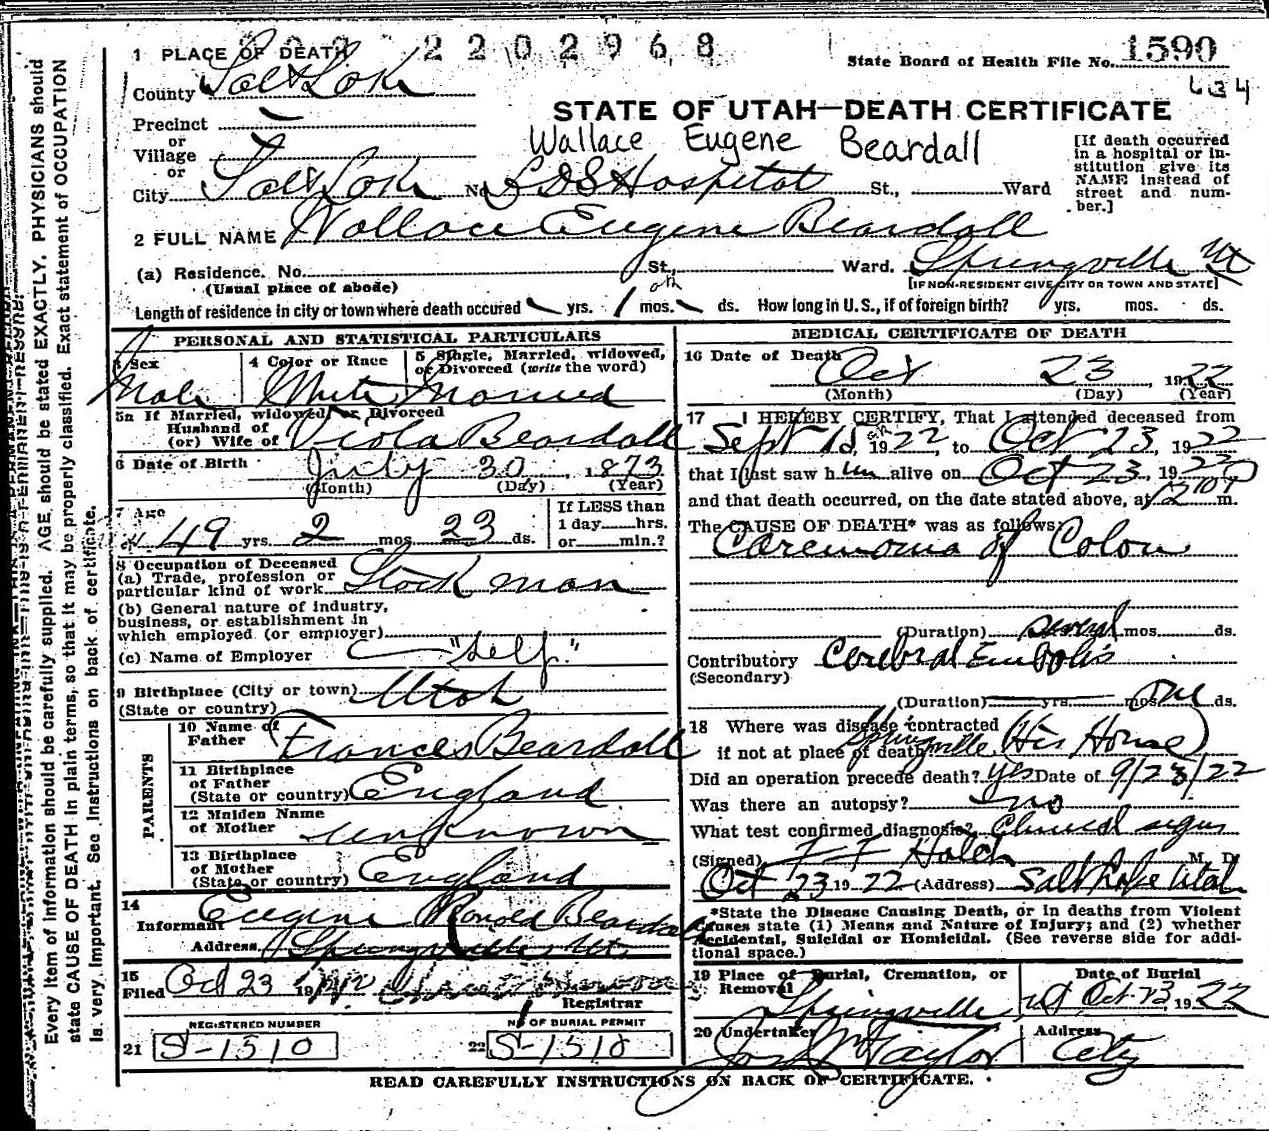 2202968
1 PLACE OF DEATH
State Board of Health File No. 1590
634
County Salt Lake
STATE OF UTAH—DEATH CERTIFICATE
Precinct
or
Village
or
Wallace Eugene Beardall
[If death occurred in a hospital or institution give its NAME instead of street and number.]
City Salt Lake No. LDS Hospital St., Ward
2 FULL NAME Wallace Eugene Beardall
(a) Residence. No. St., Ward. Springville Ut
(Usual place of abode) [IF NON-RESIDENT GIVE CITY OR TOWN AND STATE]
Length of residence in city or town where death occured yrs. 1 mos. ds. How long in U.S., if of foreign birth? yrs. mos. ds.
PERSONAL AND STATISTICAL PARTICULARS
3 Sex
Male
4 Color or Race
White
5 Single, Married, widowed, or Divorced (write the word)
Married
5a If Married, widowed, or Divorced
Husband of
(or) Wife of Viola Beardall
6 Date of Birth July 30, 1873
(Month) (Day) (Year)
7 Age
49 yrs. 2 mos. 23 ds.
If LESS than
1 day hrs.
or min.?
8 Occupation of Deceased
(a) Trade, profession or
particular kind of work Stock man
(b) General nature of industry,
business, or establishment in
which employed (or employer)
(c) Name of Employer "Self."
9 Birthplace (City or town) Utah
(State or country)
PARENTS
10 Name of
Father Frances Beardall
11 Birthplace
of Father
(State or country) England
12 Maiden Name
of Mother unknown
13 Birthplace
of Mother
(State or country) England
14
Informant Eugene Beardall
Address Springville Ut.
15
Filed Oct 23 19
Registrar
REGISTERED NUMBER
21 S-1510
No OF BURIAL PERMIT
22 S-1510
MEDICAL CERTIFICATE OF DEATH
16 Date of Death Oct 23, 1922
(Month) (Day) (Year)
17 I HEREBY CERTIFY, That I attended deceased from
Sept 15, 1922, to Oct 23, 1922
that I last saw him alive on Oct 23, 1922
and that death occurred, on the date stated above, at m.
The CAUSE OF DEATH* was as follows:
Carcinoma of Colon
(Duration) several mos. ds.
Contributory Cerebral Embolis
(Secondary)
(Duration) yrs. mos. ds.
18 Where was disease contracted
if not at place of death Springville (His House)
Did an operation precede death? Yes Date of 9/28/22
Was there an autopsy? no
What test confirmed diagnosis? Clinical signs
(Signed) Hatch M. D.
Oct. 23 1922 (Address) Salt Lake Utah
*State the Disease Causing Death, or in deaths from Violent
Causes state (1) Means and Nature of Injury; and (2) whether
Accidental, Suicidal or Homicidal. (See reverse side for addi-
tional space.)
19 Place of Burial, Cremation, or
Removal
Springville Ut
Date of Burial
Oct. 23, 1922
20 Undertaker
Taylor
Address
City
READ CAREFULLY INSTRUCTIONS ON BACK OF CERTIFICATE.
Every item of Information should be carefully supplied. AGE should be stated EXACTLY. PHYSICIANS should
state CAUSE OF DEATH in plain terms, so that it may be properly classified. Exact statement of OCCUPATION
is very important. See instructions on back of certificate.